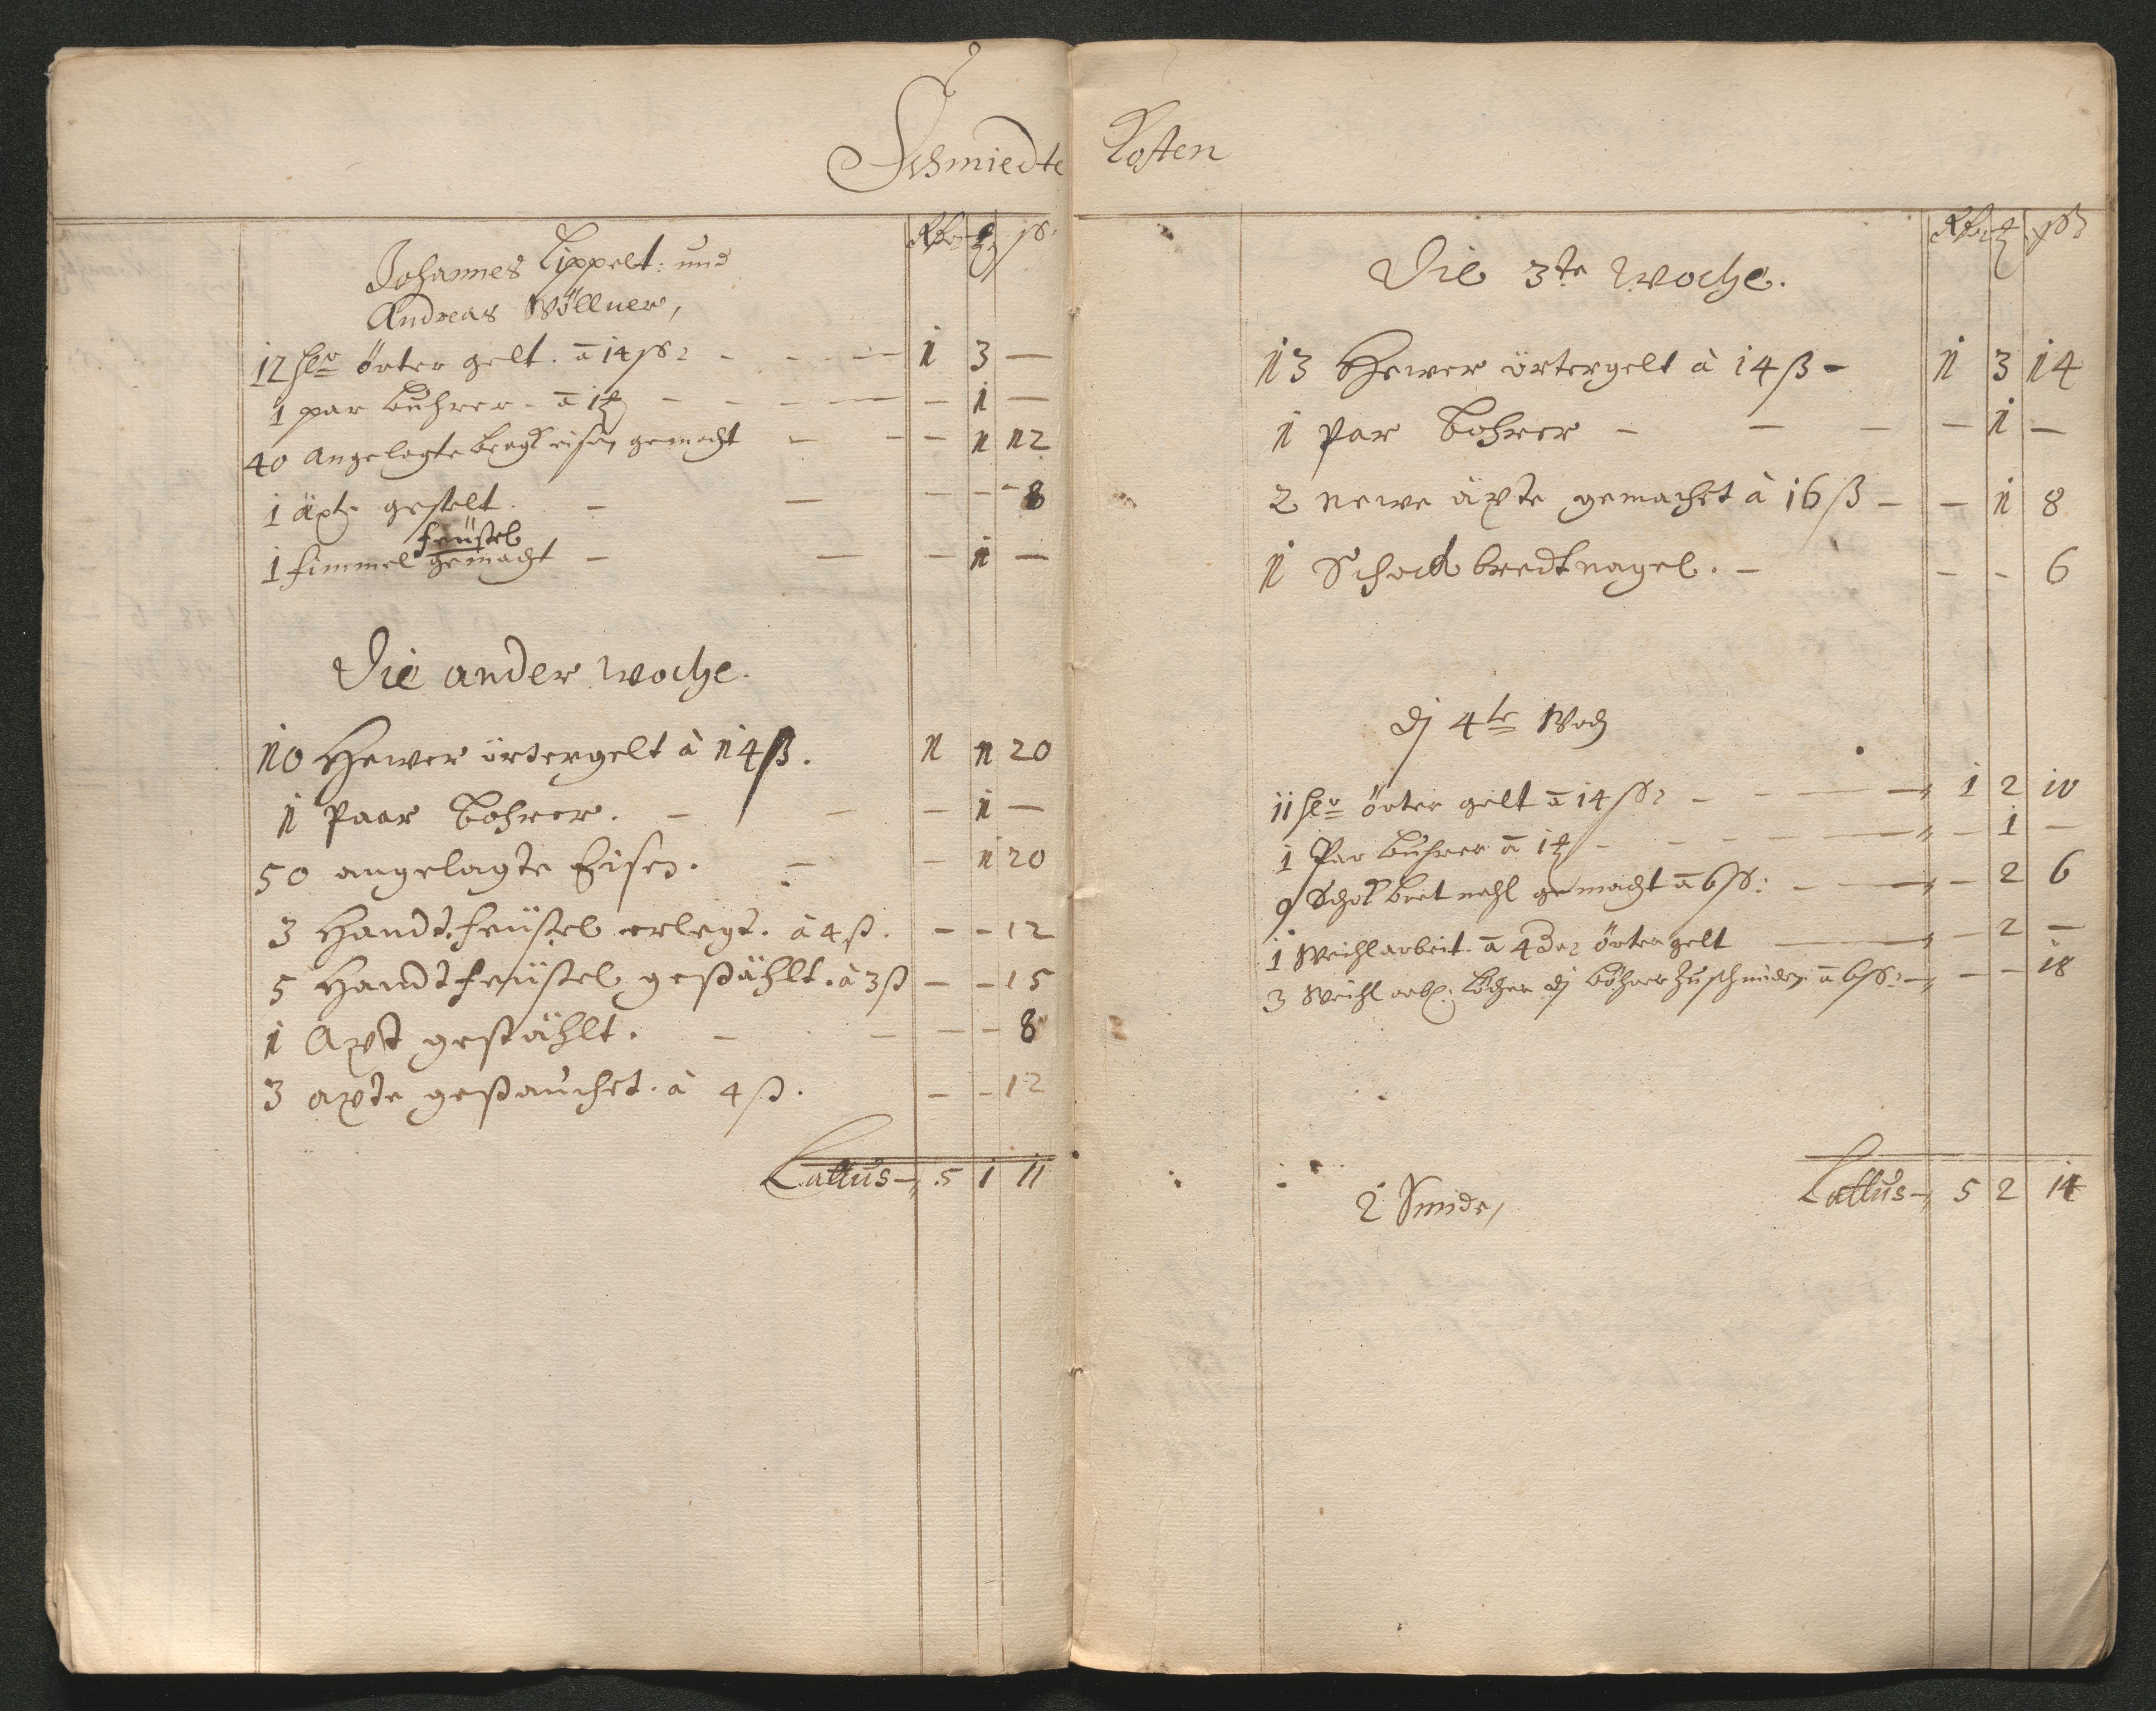 Schmiedte Kosten
Rthr ß
Johannes Lippelt: und
Andreas Wöllner,
12 örter gelt. à 14 ß - - - - 1 3 —
1 par buhrer - à 1 - - - - - 1 —
40 Angelagte bergk eisen gemacht - - - 1 12
1 äxte gestelt. - - - - 8
feüstel
1 fimmel gemacht - - - 1 —
Die ander woche.
10 Hewer örtergelt à 14 ß. 1 1 20
1 Paar bohrer. - - - 1 —
50 angelagte Eisen. - - 1 20
3 Handt feüstel erlegt. à 4 ß. - - 12
5 Handtfeüstel gestählt. à 3 ß - - 15
1 Axt gestählt. - - - - 8
3 axte gestauchet. à 4 ß. - - 12
Lattus - 5 1 11
Rthr ß
Die 3te woche.
13 Hewer örtergelt à 14 ß - 1 3 14
1 Par bohrer - - - - 1 —
2 newe äxte gemacht à 16 ß - - 1 8
1 Schock bredtnagel. - - - 6
di 4te Woch
11 örter gelt à 14 ß - - - - 1 2 10
1 Par buhrer à 1 - - - - - 1 —
9 Schok bret nehl gemacht à 6 ß: - - - 2 6
1 Weihlarbeit. à 4 örter gelt - - 2 —
3 Weihl arb: löcher di böhrer Zuschmiden à 6 ß: - - - 18
Lattus - 5 2 14
2 Smide,